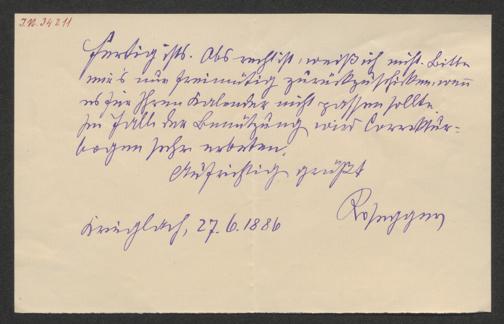 I.N. 34211
Fertig ists. Obs recht ist, weiß ich nicht. Bitte
mir's nur freimütig zurückzuschicken, wenn
es für Ihren Kalender nicht passen sollte.
Im Falle der Benützung wird Correktur-
bogen sehr erbeten.
Aufrichtig grüßt
Rosegger
Krieglach, 27. 6. 1886